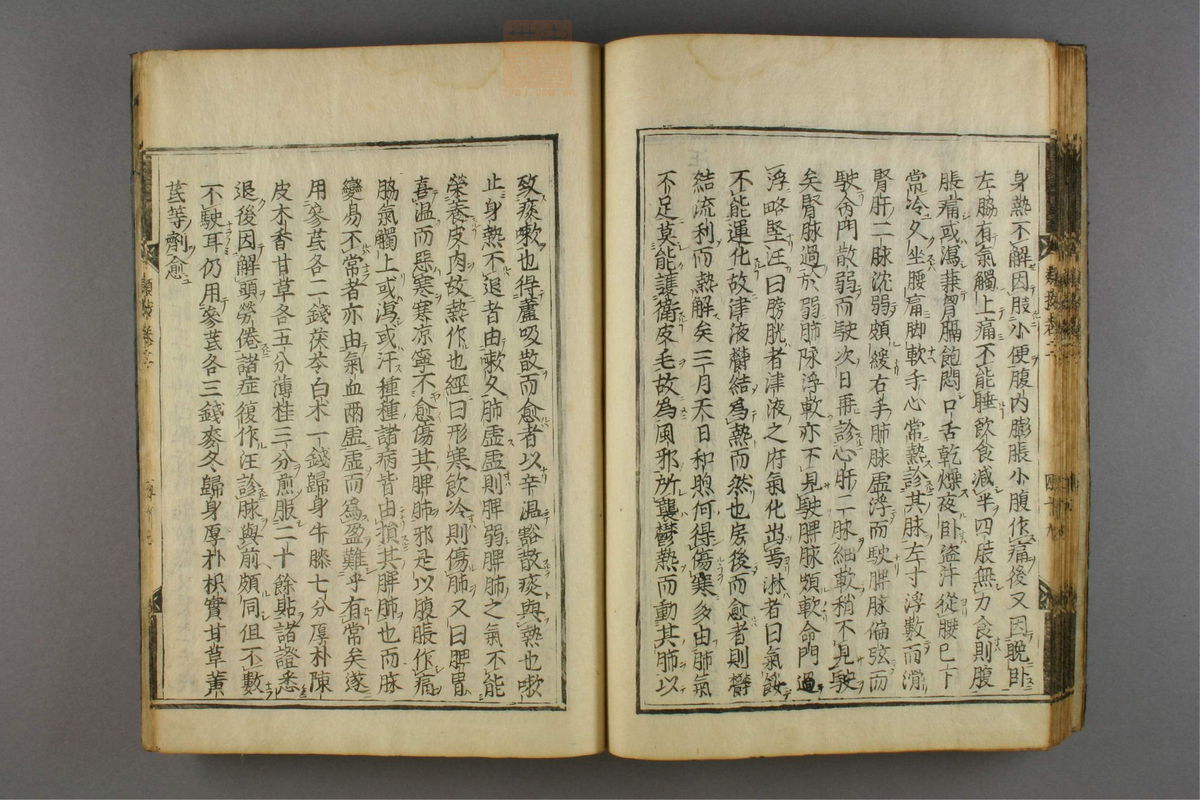 身熱不解因肢小便腹内膨脹小腹作痛後又因晚卧
左脇有氣觸上痛不能睡飲食減半四肢無力食則腹
脹痛或瀉兼胷膈飽悶口舌乾燥夜卧盜汗從腰已下
常冷久坐腰痛脚軟手心常熱診其脉左寸浮數而滑
腎肝二脉沈弱頗緩右手肺脉虚浮而駛脾脉偏弦而
駛命門散弱而駛次日再診心肝二脉細軟稍不見駛
矣腎脉過於弱肺脉浮軟亦不見駛脾脉頗軟命門過
浮略堅汪曰膀胱者津液之府氣化出焉淋者曰氣餒
不能運化故津液鬱結為熱而然也房後而愈者則鬱
結流利而熱解矣三月天日和煦何得傷寒多由肺氣
不足莫能護衛皮毛故為風邪所襲鬱熱而動其肺以
致痰嗽也得蘆吸散而愈者以辛温豁散痰與熱也嗽
止身熱不退者由嗽久肺虚虚則脾弱脾肺之氣不能
榮養皮肉故熱作也經曰形寒飲冷則傷肺又曰脾胃
喜温而惡寒寒凉寧不愈傷其脾肺邪是以腹脹作痛
脇氣觸上或瀉或汗種種諸病皆由損其脾肺也而脉
變易不常者亦由氣血兩虚虚而為盈難乎有常矣遂
用參芪各二錢茯苓白术一錢歸身牛膝七分厚朴陳
皮木香甘草各五分薄桂三分煎服二十餘貼諸證悉
退後因解頭勞倦諸症復作汪診脉與前頗同但不數
不駛耳仍用參芪各三錢麥冬歸身厚朴枳實甘草黄
芪等劑愈
類按 卷之二